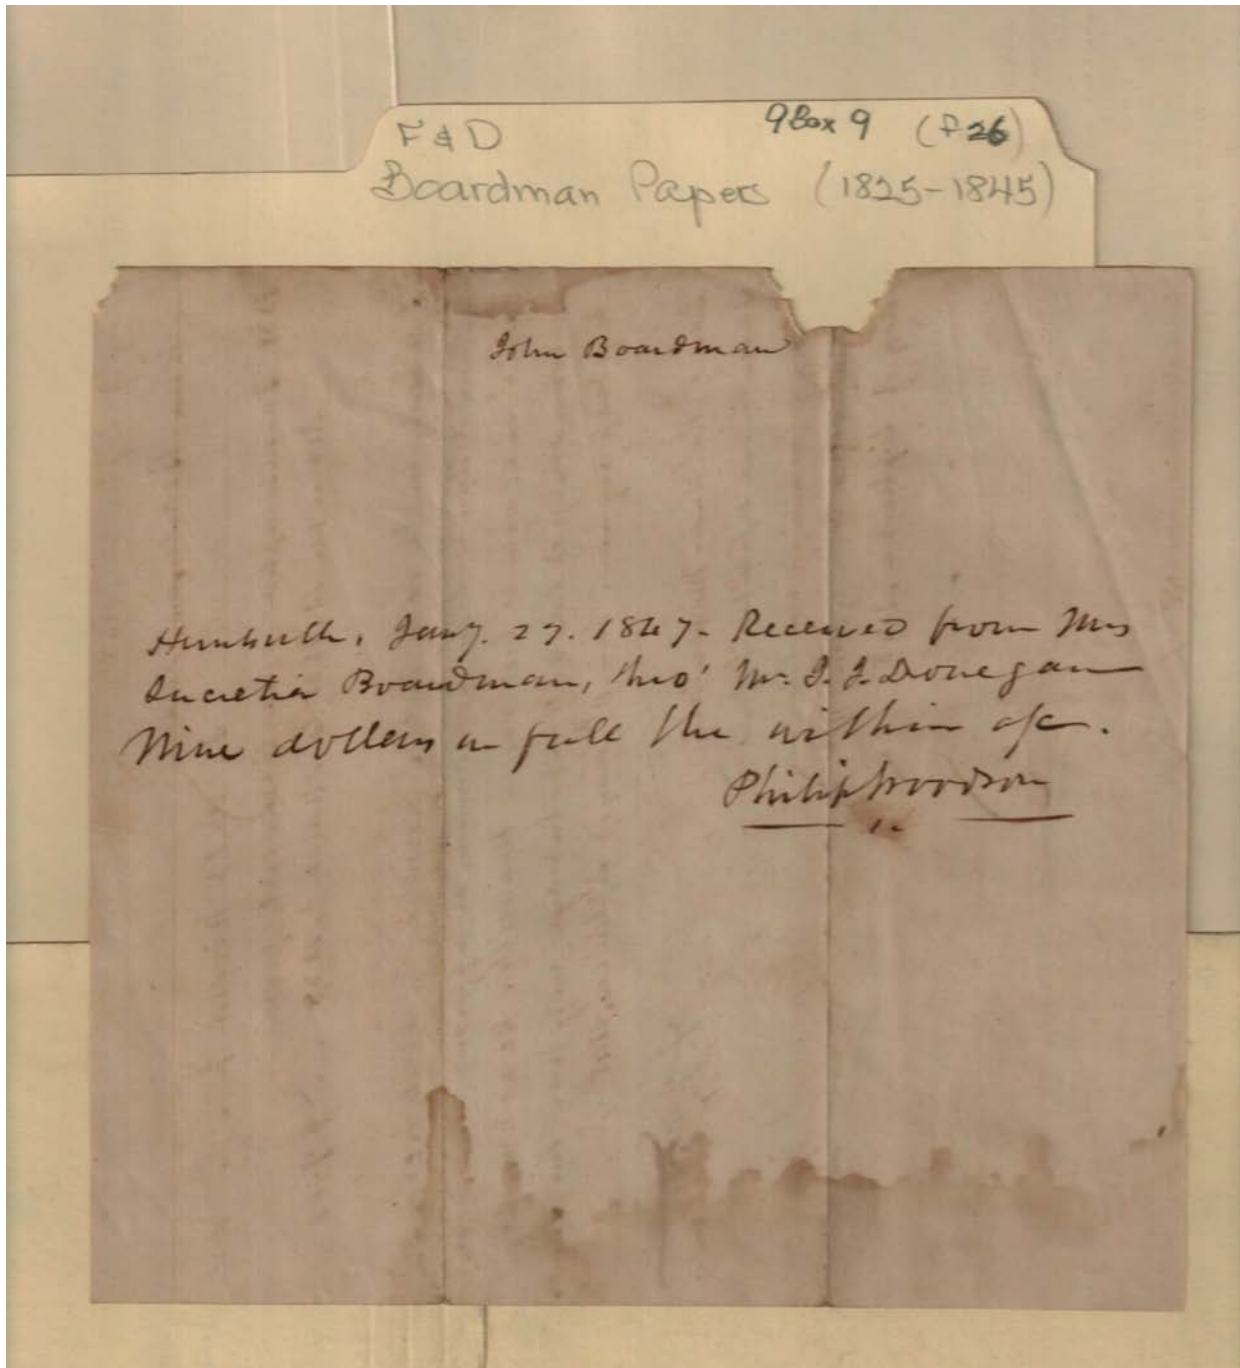 F & D 9 Box 9 (f 26)
Boardman Papers (1825-1845)
John Boardman
Huntsville, Jany. 27. 1847. Received from Mrs
Lucretia Boardman, thro' Mr. J. J. Donegan
Nine dollars in full the within a/c.
Philip Woodson